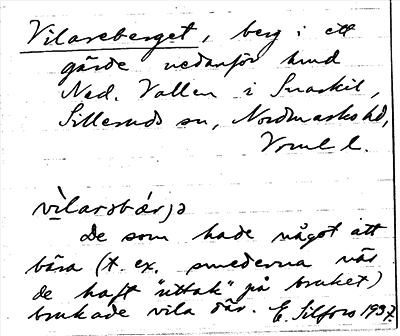 Vilareberget, berg i ett
gärde nedanför
Ned. Vallen i
Silleruds sn, Nordmarks hd,
Värml l.
De som hade något att
bära (t. ex. smederna när
de haft "uttak" på bruket)
brukade vila där. E. Silfors 1937.